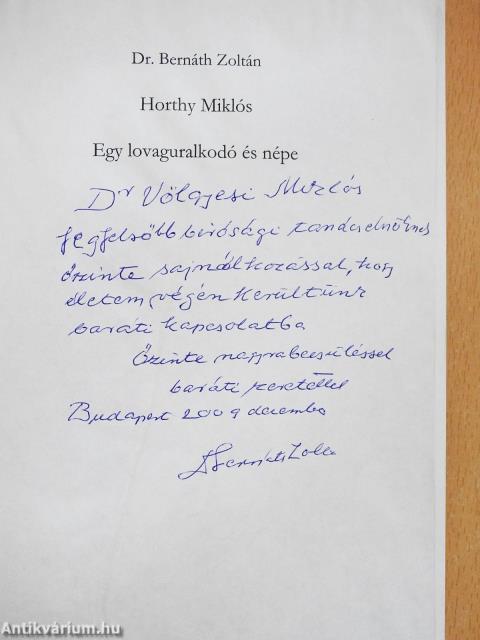 Dr. Bernáth Zoltán
Horthy Miklós
Egy lovaguralkodó és népe
Dr Völgyesi Miklós
legfelsőbb bírósági tanácselnöknek
őszinte sajnálkozással, hogy
életem végén kerültünk
baráti kapcsolatba
Őszinte nagyrabecsüléssel
baráti szeretettel
Budapest 2009 december
Bernáth Zoltán
Antikvárium.hu